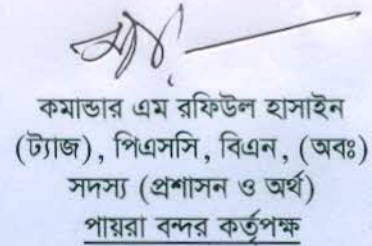 কমান্ডার এম রফিউল হাসাইন
(ট্যাজ), পিএসসি, বিএন, (অবঃ)
সদস্য (প্রশাসন ও অর্থ)
পায়রা বন্দর কর্তৃপক্ষ